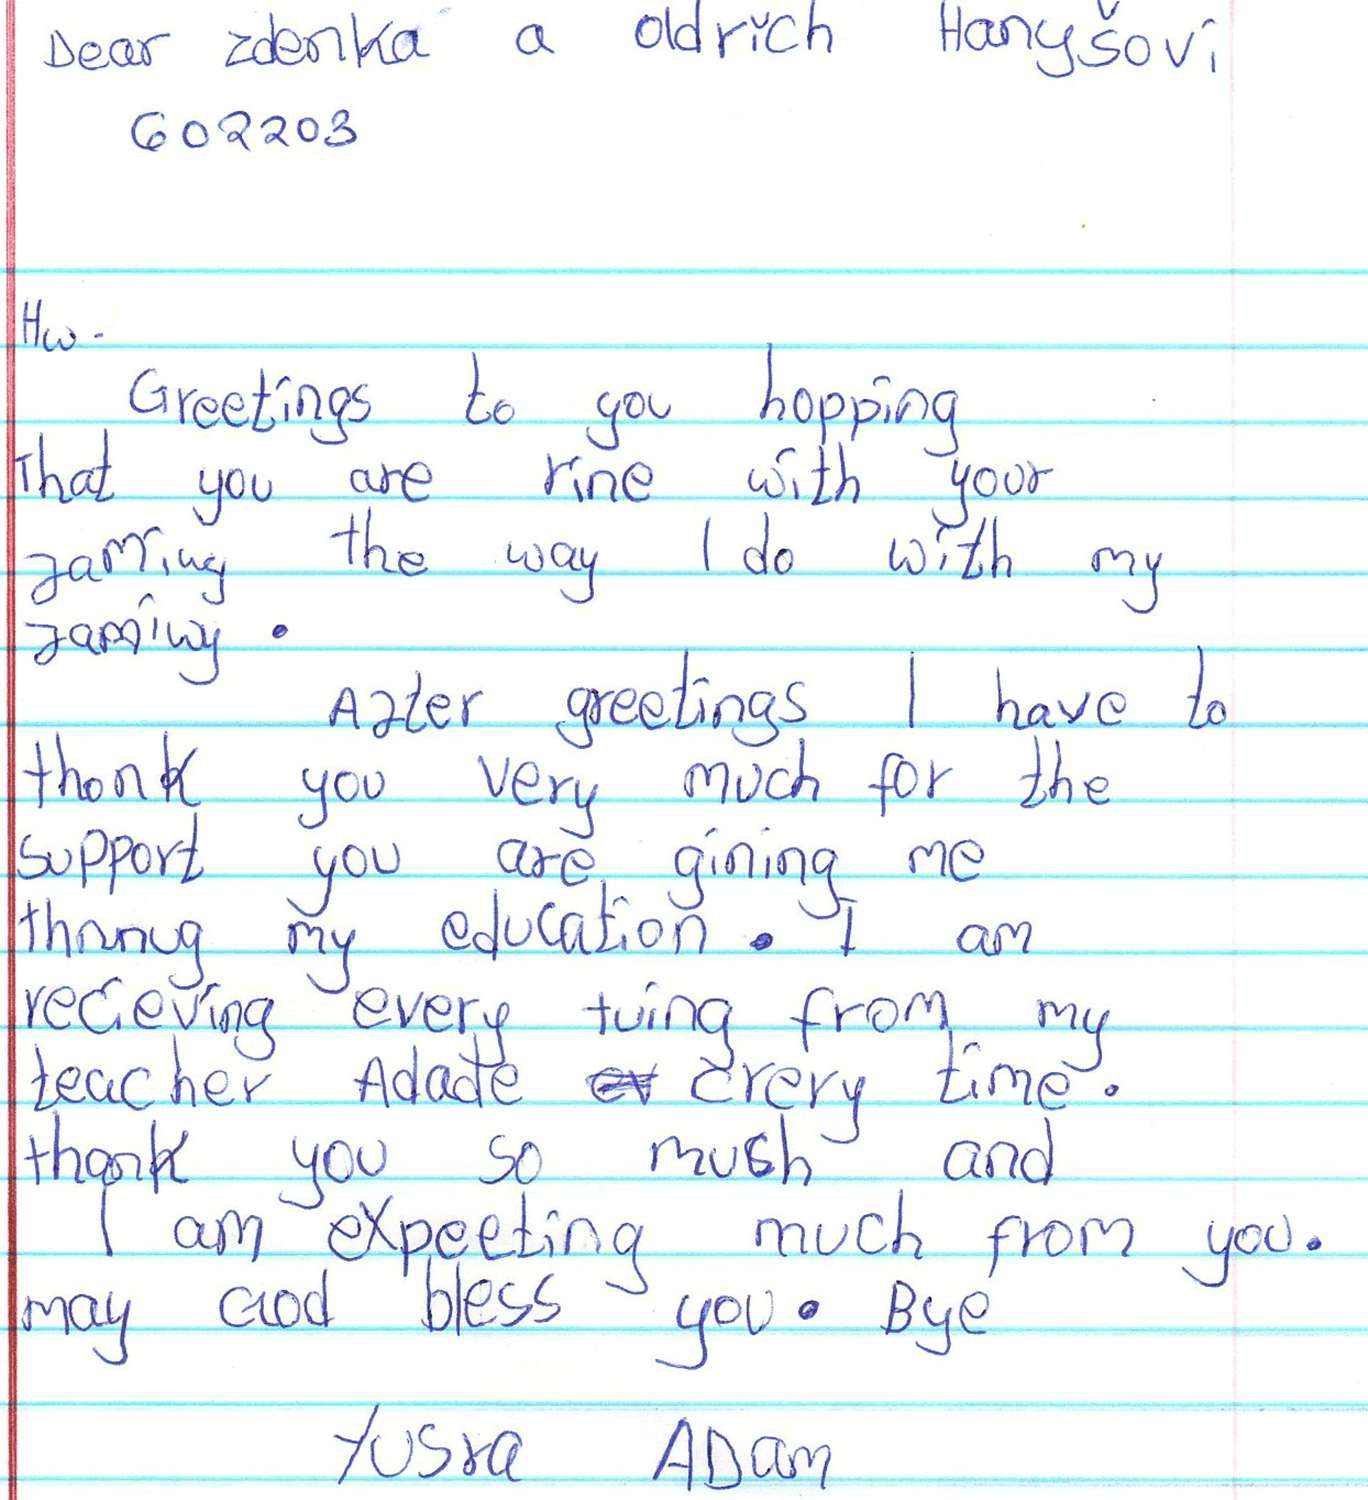 Dear Zdenka a Oldřich Hanyšovi
602203
Hw -
Greetings to you hopping
That you are rine with your
jamiwy the way I do with my
jamiwy.
After greetings I have to
thonk you very much for the
support you are gining me
thrnug my education. I am
recieving every tuing from my
teacher Adade ev erery time.
thank you so mush and
I am expeeting much from you.
may God bless you. Bye
Yusra ADam